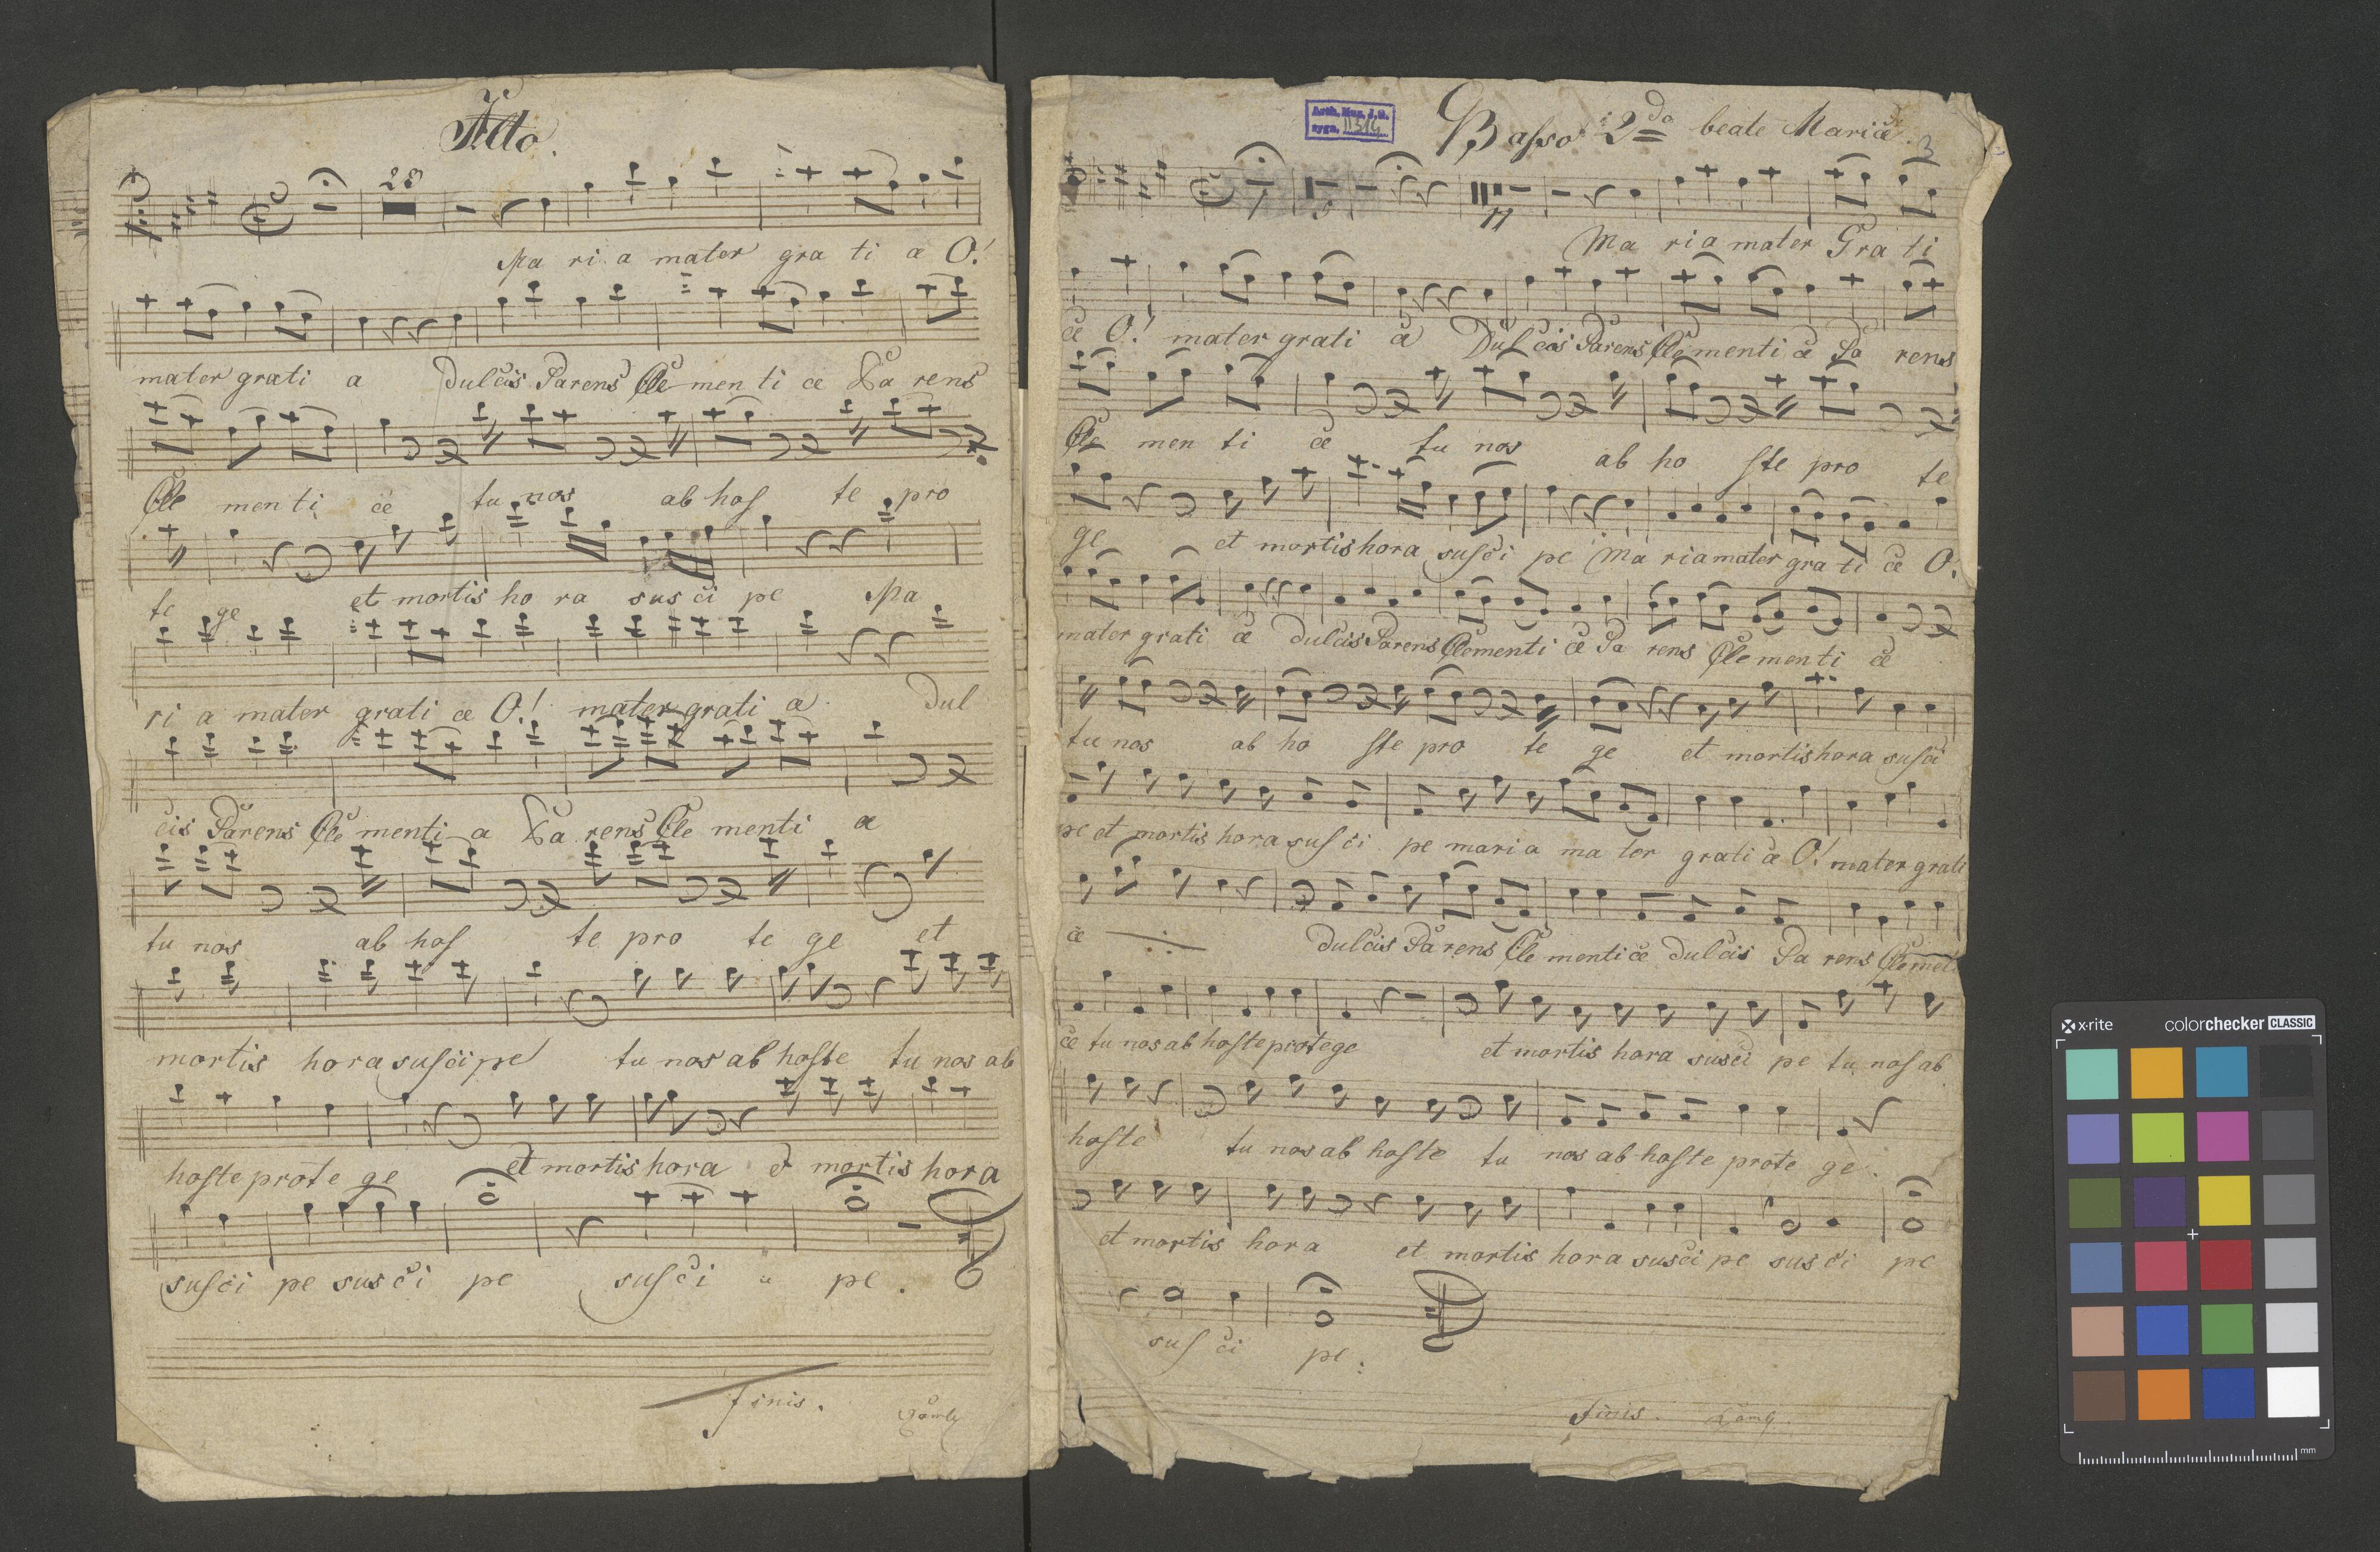 Alto.
23
Ma ri a mater gra ti æ O!
mater grati a Dulcis Parens Cle men ti æ Pa rens
Cle men ti æ tu nos ab hos te pro
te ge et mortis ho ra sus ci pe Ma
ri a mater grati æ O! mater grati a Dul
cis Parens Cle menti a Pa rens Cle menti a
tu nos ab hos te pro te ge et
mortis hora suscipe tu nos ab hoste tu nos ab
hoste prote ge et mortis hora et mortis hora
susci pe susci pe susci pe.
finis.
Basso 2do beate Mariæ. 3
11
Ma ri a mater Gra ti
æ O! mater grati æ Dulcis Parens Clementi æ Pa rens
Cle men ti æ tu nos ab ho ste pro te
ge et mortis hora susci pe Ma ria mater gra ti æ O.
mater grati æ dulcis Parens Clementi æ Pa rens Cle menti æ
tu nos ab ho ste pro te ge et mortis hora susci
pe et mortis hora sus ci pe mari a ma ter grati æ O! mater grati
æ dulcis Parens Cle menti æ dulcis Pa rens Clemeti
æ tu nos ab hoste protege et mortis hora susci pe tu nos ab
hoste tu nos ab hoste tu nos ab hoste prote ge.
et mortis hora et mortis hora susci pe sus ci pe
sus ci pe.
finis.
x·rite colorchecker CLASSIC
mm